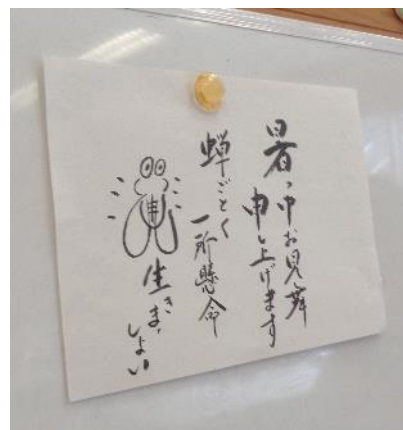 暑っ中お見舞
申し上げます
蝉ごとく
一所懸命
生きま
しょい